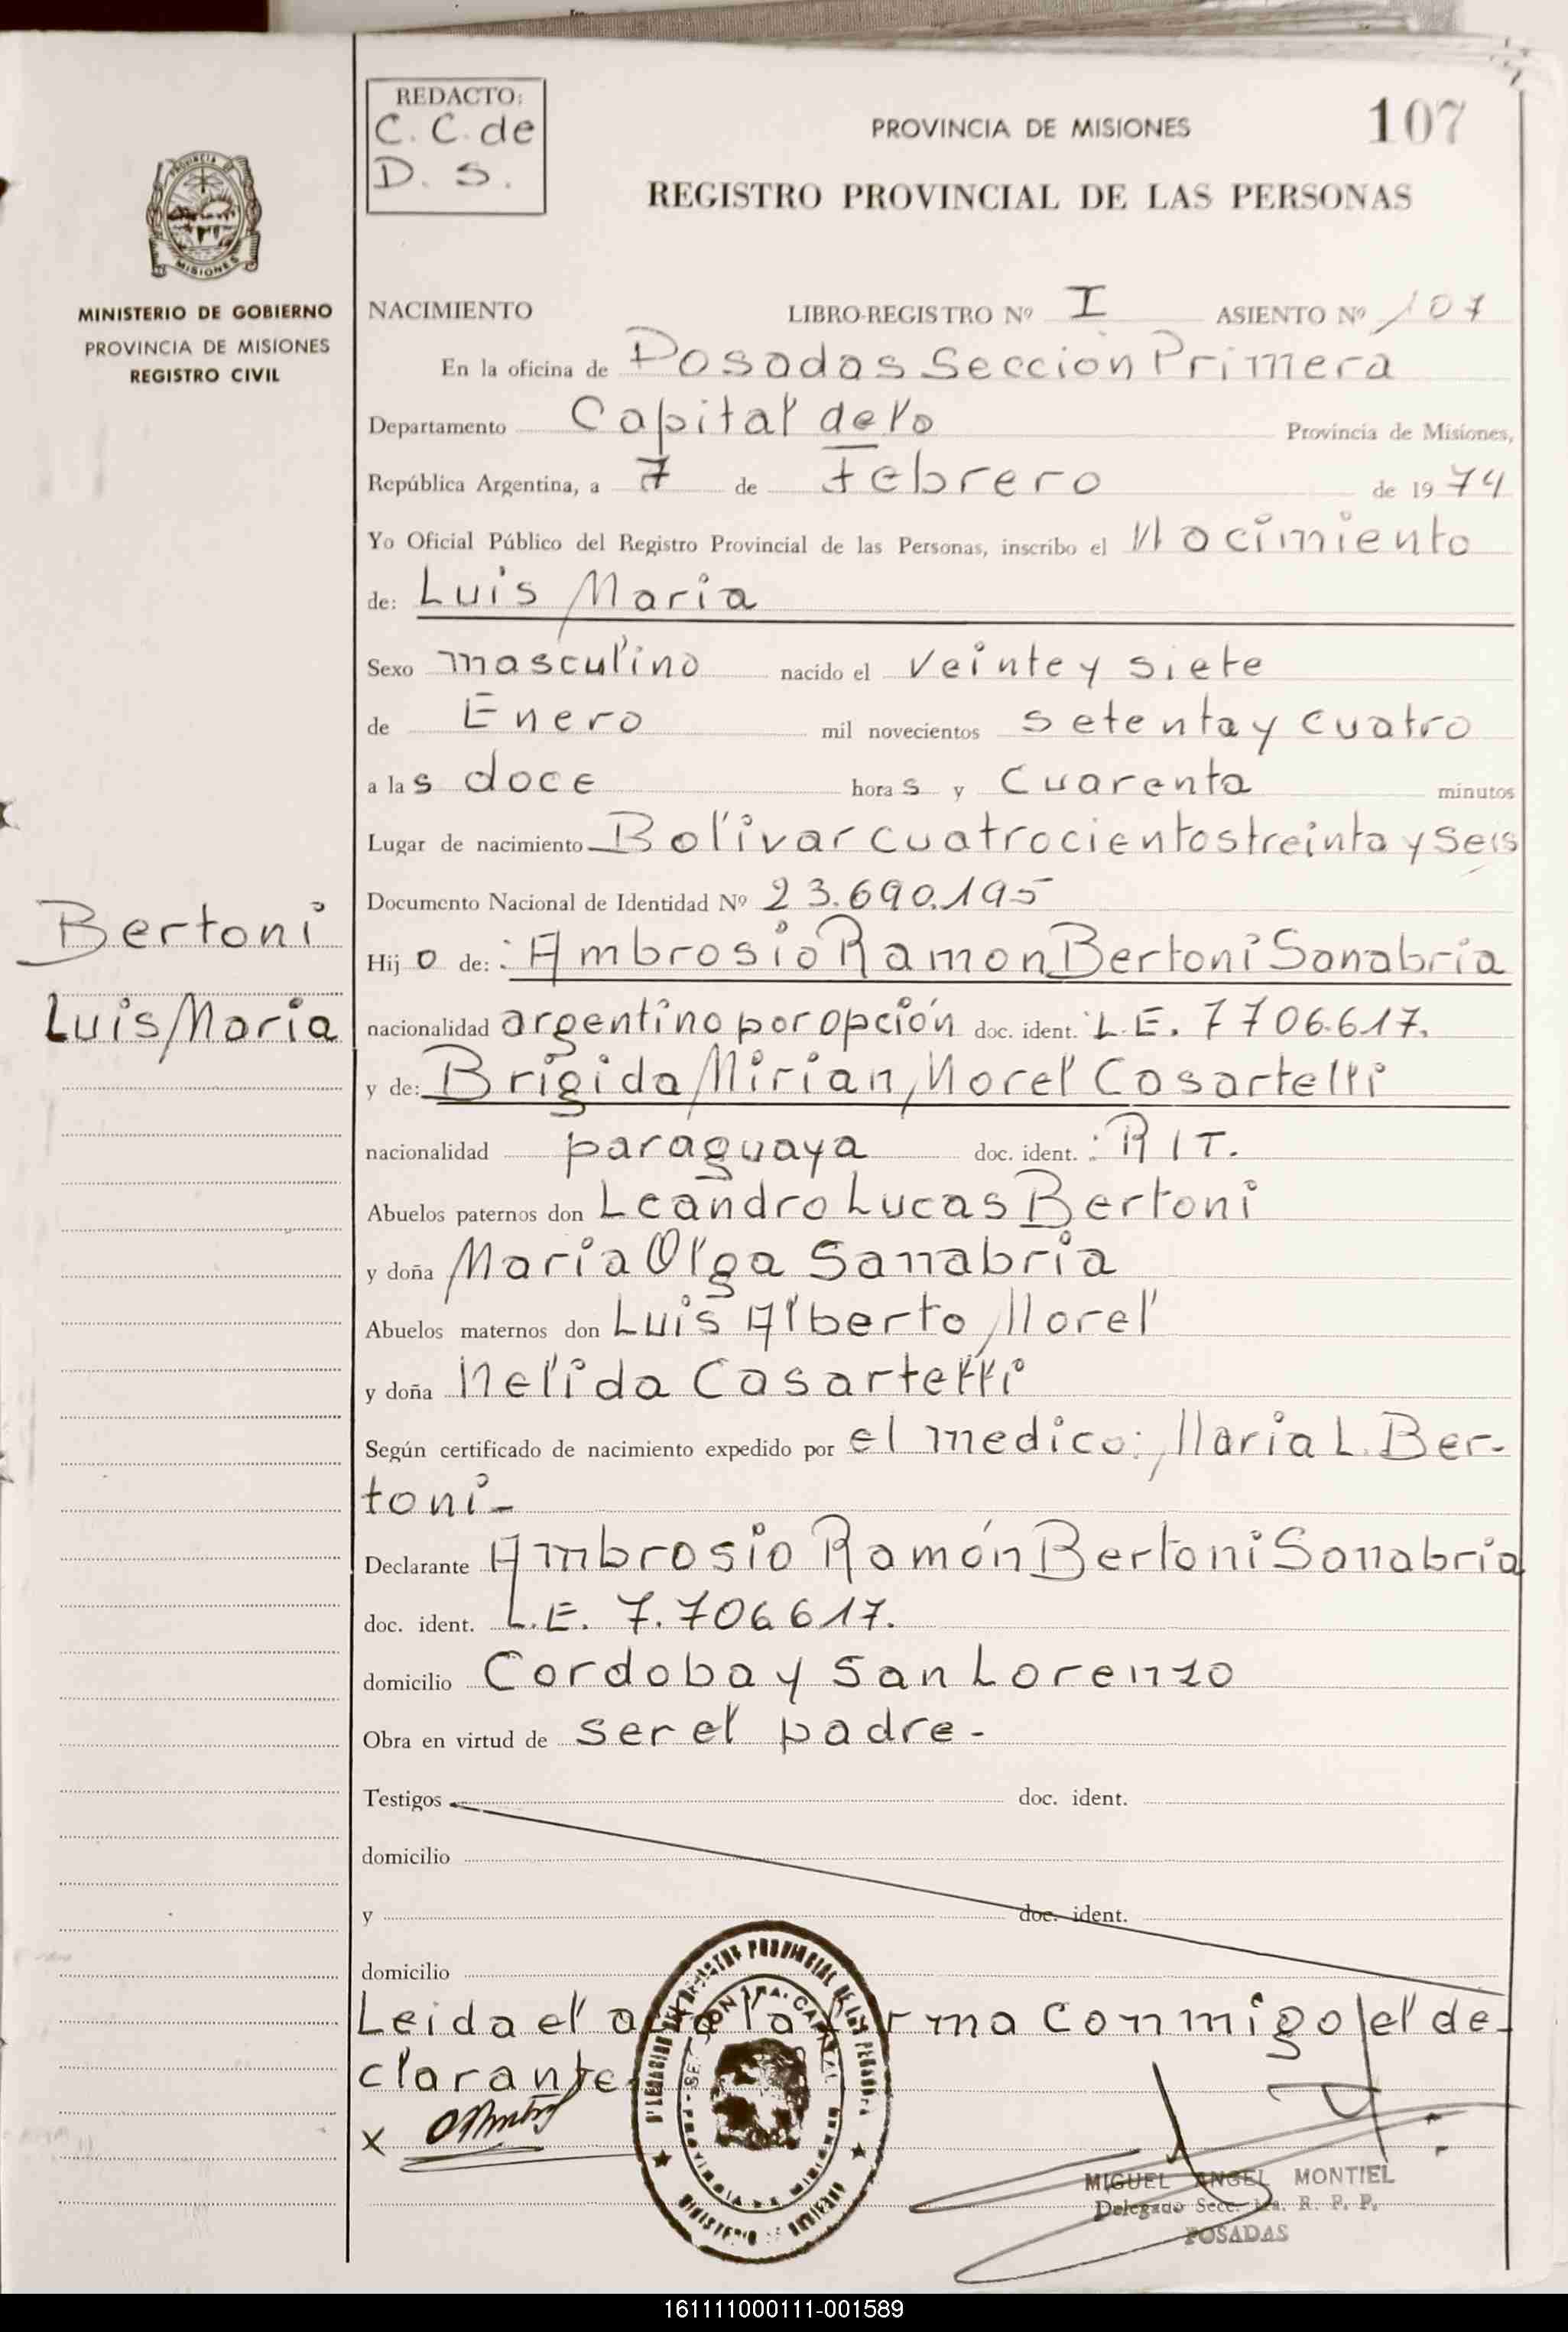 REDACTO:
C. C. de
D. S.
PROVINCIA DE MISIONES
107
REGISTRO PROVINCIAL DE LAS PERSONAS
PROVINCIA DE
MISIONES
MINISTERIO DE GOBIERNO
PROVINCIA DE MISIONES
REGISTRO CIVIL
NACIMIENTO LIBRO-REGISTRO Nº I ASIENTO Nº 107
En la oficina de Posadas Sección Primera
Departamento Capital de la Provincia de Misiones,
República Argentina, a 7 de Febrero de 1974
Yo Oficial Público del Registro Provincial de las Personas, inscribo el Nacimiento
de: Luis Maria
Sexo masculino nacido el veinte y siete
de Enero mil novecientos setenta y cuatro
a las doce horas y cuarenta minutos
Lugar de nacimiento Bolívar cuatrocientos treinta y seis
Documento Nacional de Identidad Nº 23.690.195
Bertoni
Luis Maria
Hijo de: Ambrosio Ramon Bertoni Sanabria
nacionalidad argentino por opción doc. ident. L.E. 7706.617.
y de: Brígida Mirian Morel Casartelli
nacionalidad paraguaya doc. ident.: R I T.
Abuelos paternos don Leandro Lucas Bertoni
y doña María Olga Sanabria
Abuelos maternos don Luis Alberto Morel
y doña Nelida Casartelli
Según certificado de nacimiento expedido por el medico: Maria L. Ber-
toni-
Declarante Ambrosio Ramón Bertoni Sanabria
doc. ident. L.E. 7.706.617.
domicilio Cordoba y San Lorenzo
Obra en virtud de ser el padre-
Testigos doc. ident.
domicilio
y doc. ident.
domicilio
Leida el acta la firma conmigo el de-
clarante
x
MIGUEL ANGEL MONTIEL
Delegado Secc. 1ra. R. P. P.
POSADAS
161111000111-001589